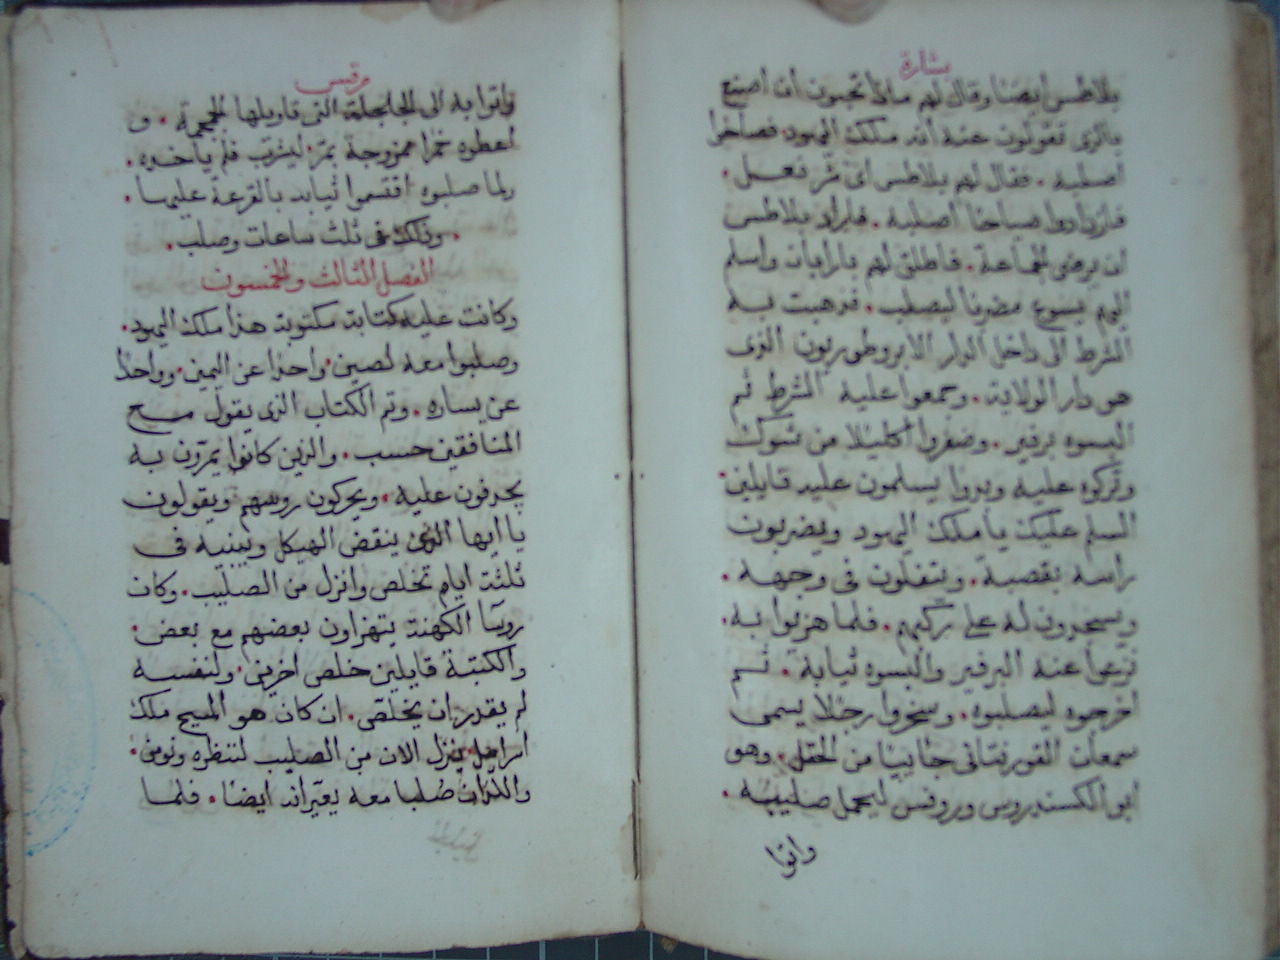 بشارة
بلاطس ايضا وقال لهم ماذا تحبون ان اصنع
بالذى تقولون عنه انه ملك اليهود فصاحوا
اصلبه . فقال لهم بلاطس اى شر فعل .
فازدادوا صياحا اصلبه . فاراد بلاطس
ان يرضى الجماعة . فاطلق لهم بارابان واسلم
اليهم يسوع مضروبا ليصلب . فذهبت به
الشرط الى داخل الدار الابروطوريون الذى
هو دار الولاية . وجمعوا عليه الشرط ثم
البسوه برفير . وضفروا اكليلا من شوك
وتركوه عليه وبدوا يسلمون عليه قايلين .
السلم عليك يا ملك اليهود ويضربون
راسه بقصبة . ويتفلون فى وجهه .
ويسجدون له على ركبهم . فلما هزيوا به .
نزعوا عنه البرفير والبسوه ثيابة . ثم
اخرجوه ليصلبوه . وسخروا رجلا يسمى
سمعان القورينانى جانييا من الحقل . وهو
ابو الكسندروس وروفس ليحمل صليبه .
واتوا
مرقس
واتوا به الى الجلجلة التى تاويلها الجمجمة . و
اعطوه خمرا ممزوجة بمر . ليشرب فلم ياخذه .
ولما صلبوه اقتسموا ثيابه بالقرعة عليها .
. وذلك فى ثلث ساعات وصلب .
الفصل الثالث والخمسون
وكانت عليه كتابة مكتوبة هذا ملك اليهود .
وصلبوا معه لصين . واحدا عن اليمين . وواحدا
عن يساره . وتم الكتاب الذى يقول مع
المنافقين حسب . والذين كانوا يمرون به
يجدفون عليه . ويحركون روسهم ويقولون
يا ايها الذى ينقض الهيكل ويبنيه فى
ثلثة ايام تخلص وانزل من الصليب . وكان
روسا الكهنة يتهزاون بعضهم مع بعض .
والكتبة قايلين خلص اخرين . ولنفسه
لم يقدر ان يخلص . ان كان هو المسيح ملك
اسراييل ينزل الان من الصليب لننظره ونومن .
واللذان صلبا معه يعيرانه ايضا . فلما